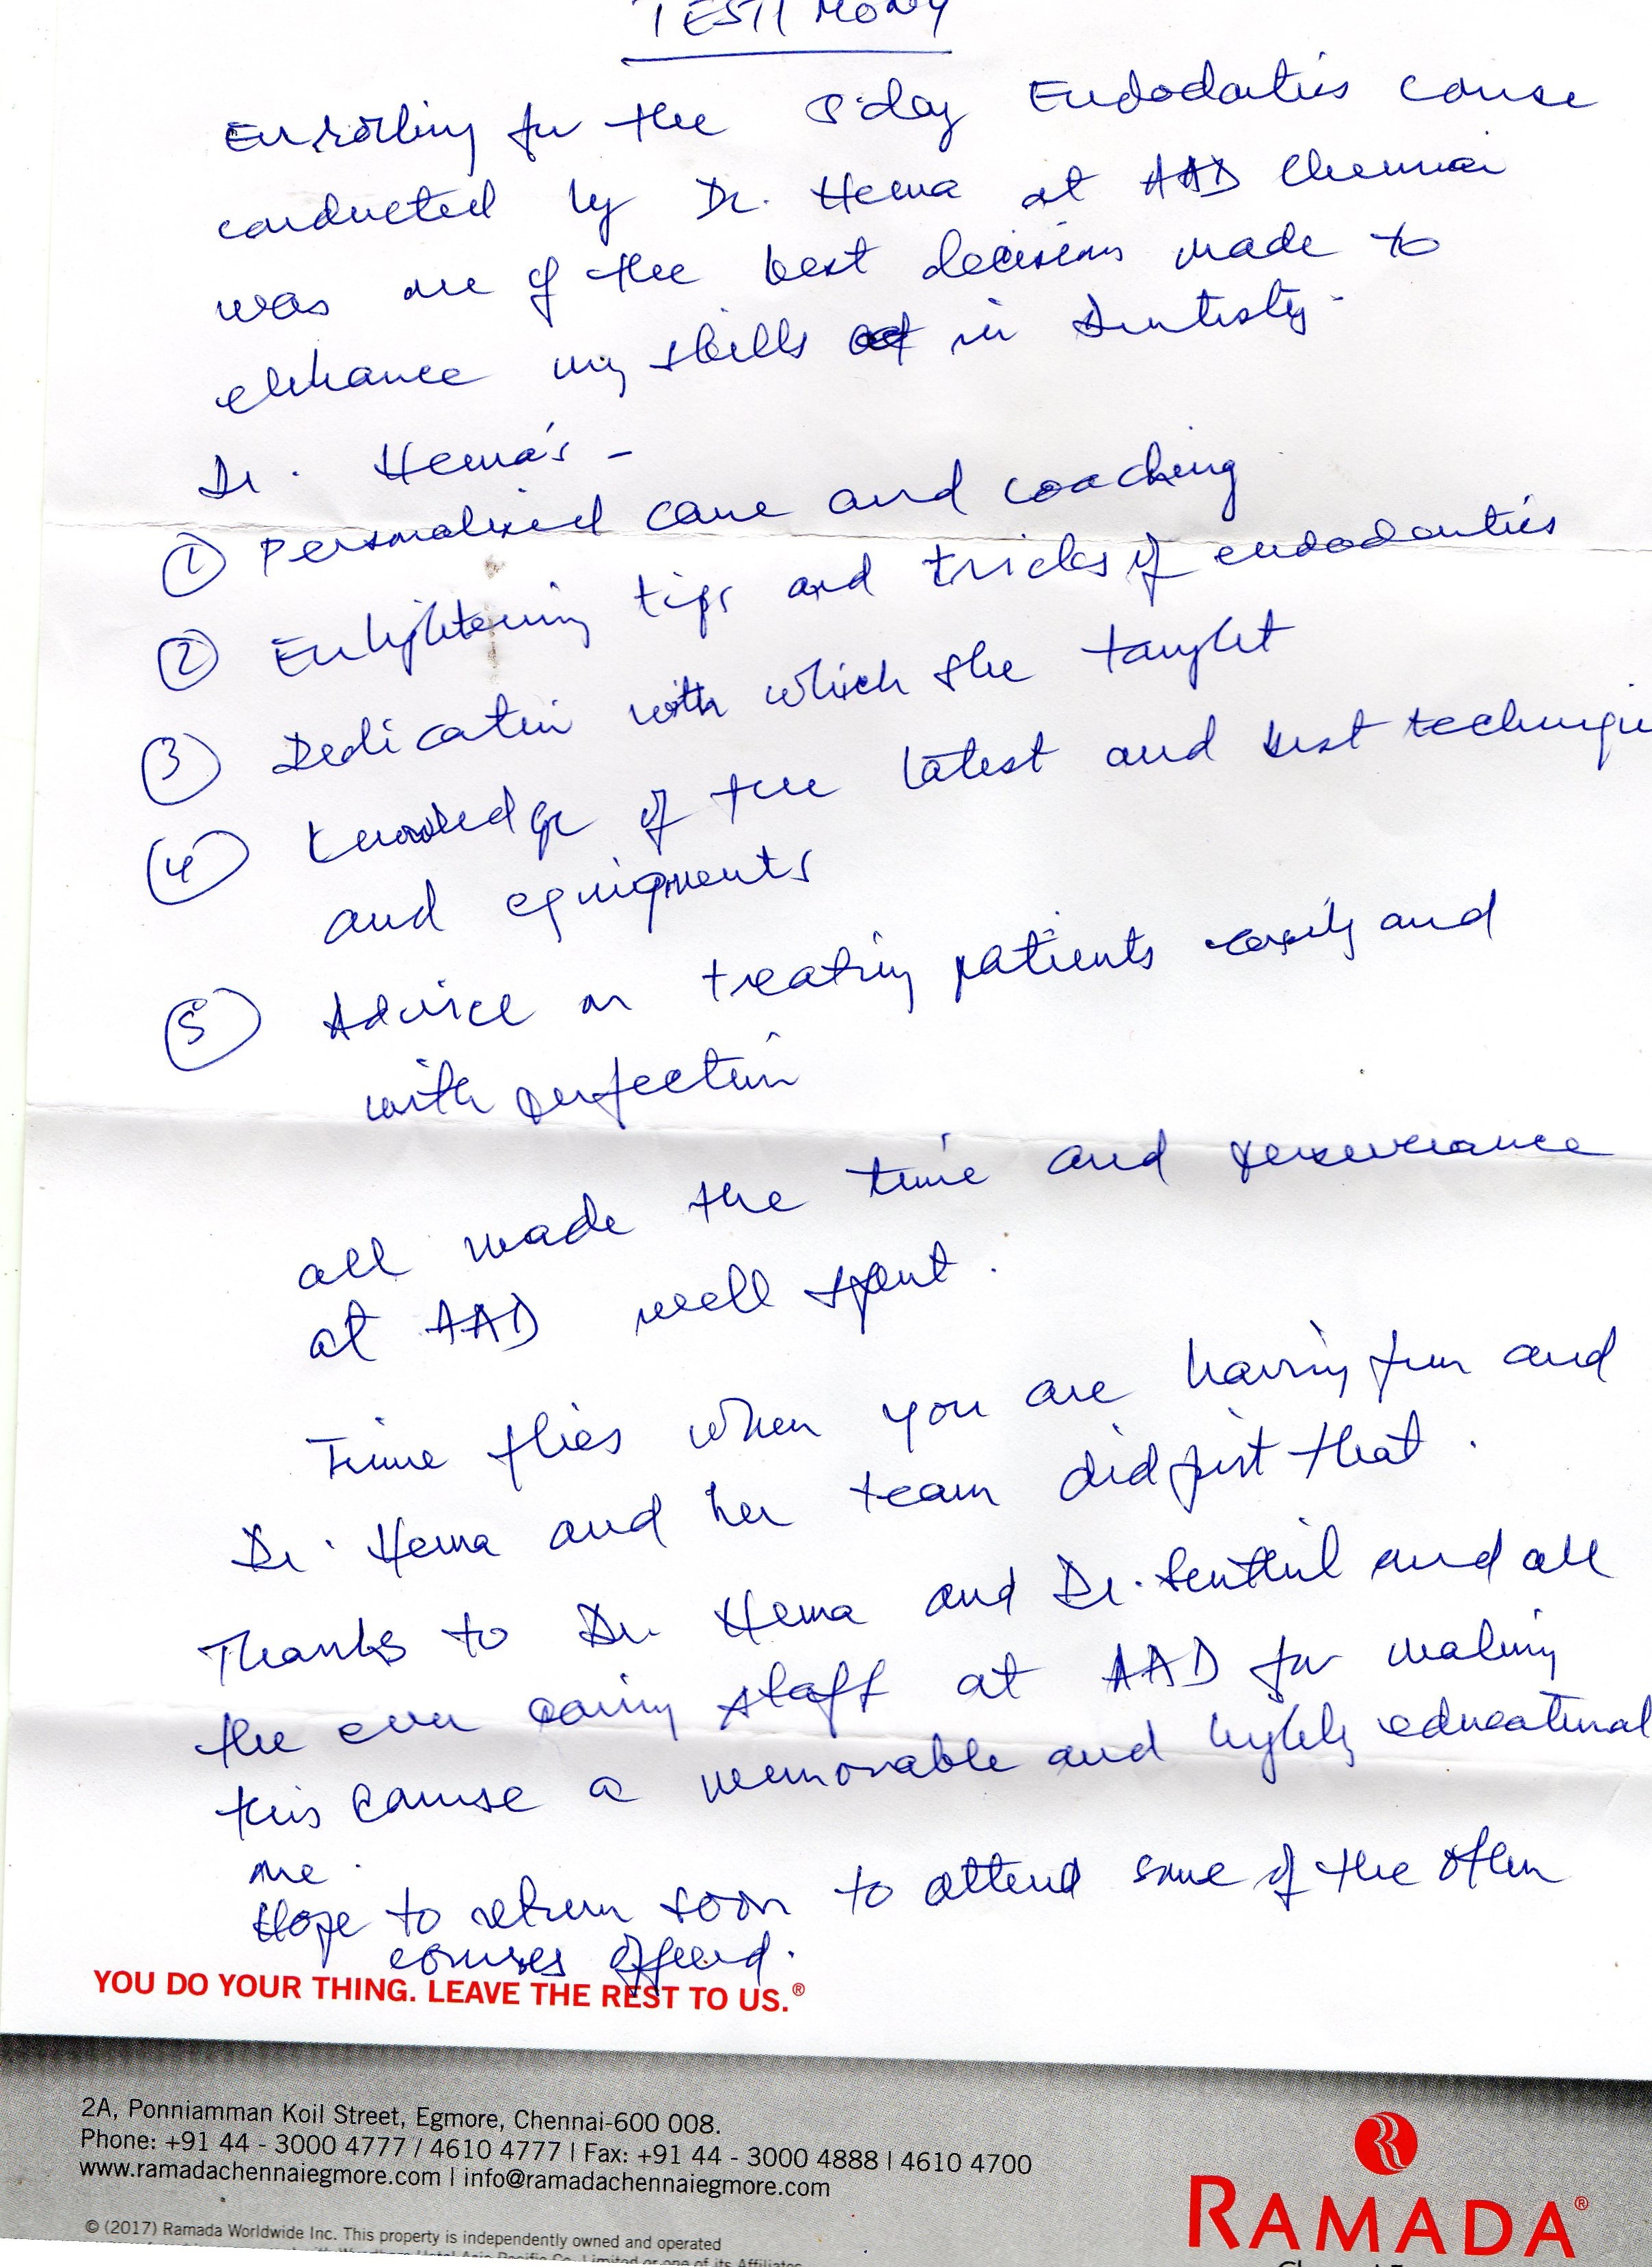 TESTIMONY
Enrolling for the 8 day Endodontics course
conducted by Dr. Hema at AAD Chennai
was one of the best decisions made to
enhance my skills in Dentistry.
Dr. Hema's -
① Personalized care and coaching
② Enlightening tips and tricks of endodontics
③ Dedication with which she taught
④ Knowledge of the latest and best techniqu
and equipments
⑤ Advice on treating patients easily and
with perfection
all made the time and perseverance
at AAD well spent.
Time flies when you are having fun and
Dr. Hema and her team did just that.
Thanks to Dr. Hema and Dr. Senthil and all
the ever caring staff at AAD for making
this course a memorable and highly educational
one.
Hope to return soon to attend some of the other
courses offered.
YOU DO YOUR THING. LEAVE THE REST TO US.®
2A, Ponniamman Koil Street, Egmore, Chennai-600 008.
Phone: +91 44 - 3000 4777 / 4610 4777 | Fax: +91 44 - 3000 4888 | 4610 4700
www.ramadachennaiegmore.com | info@ramadachennaiegmore.com
RAMADA®
© (2017) Ramada Worldwide Inc. This property is independently owned and operated